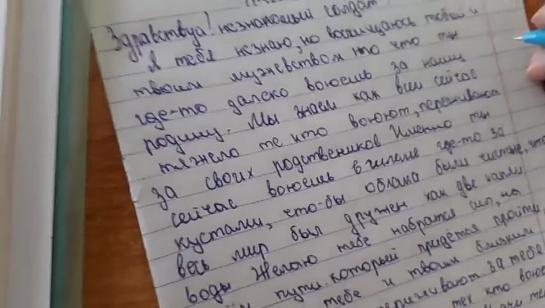 Здравствуй! незнакомый солдат
Я тебя незнаю, но восхищаюсь тобой и
твоим мужеством что что ты
где-то далеко воюешь за нашу
родину. Мы знаем как всем сейчас
тяжело те кто воюют, переживая
за своих родственников Именно ты
сейчас воюешь в где-то за
кустами, что-бы облака были чистые, что
весь мир был дружен как две капли
воды Желаю тебе набратся сил, на
пути который придётся пройти
тебе и твоим близким
за тебя
тех кто воюе